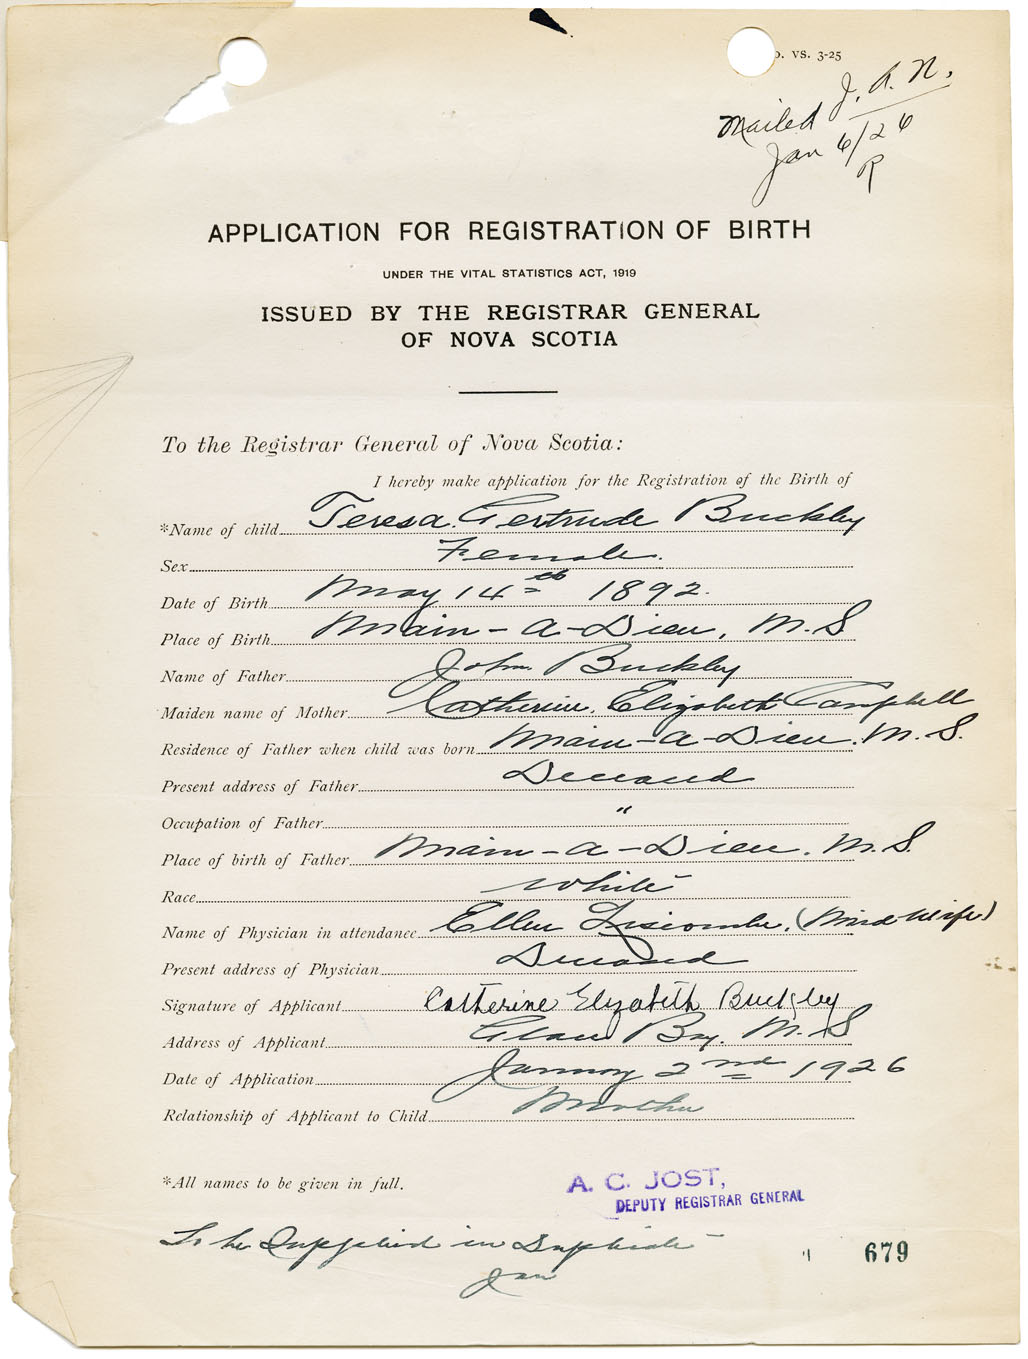 o. VS. 3-25
J. A. N.
Mailed
Jan 6/26
R
APPLICATION FOR REGISTRATION OF BIRTH
UNDER THE VITAL STATISTICS ACT, 1919
ISSUED BY THE REGISTRAR GENERAL
OF NOVA SCOTIA
To the Registrar General of Nova Scotia:
I hereby make application for the Registration of the Birth of
*Name of child Teresa Gertrude Buckley
Sex Female.
Date of Birth May 14th 1892.
Place of Birth Main-a-Dieu, N.S
Name of Father John Buckley
Maiden name of Mother Catherine Elizabeth Campbell
Residence of Father when child was born Main-a-Dieu. N.S.
Present address of Father Deceased
Occupation of Father "
Place of birth of Father Main-a-Dieu. N.S.
Race White
Name of Physician in attendance Ellen Liscombe, (Mid Wife)
Present address of Physician Deceased
Signature of Applicant Catherine Elizabeth Buckley
Address of Applicant Glace Bay. N.S
Date of Application January 2nd 1926
Relationship of Applicant to Child Mother
*All names to be given in full.
A. C. JOST,
DEPUTY REGISTRAR GENERAL
To be Supplied in Duplicate
679